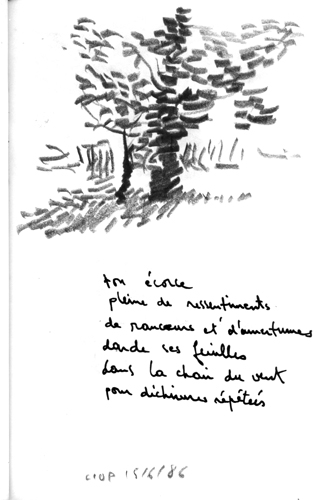 ton écorce
pleine de ressentiments
de rancœurs et d'amertumes
darde ses feuilles
dans la chair du vent
pour déchirures répétées
CIUP 15/6/86